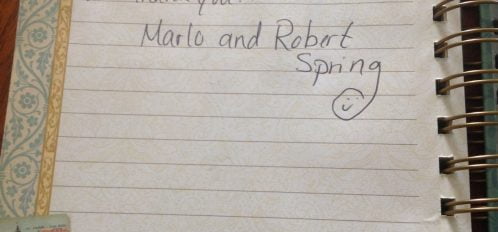 Marlo and Robert
Spring